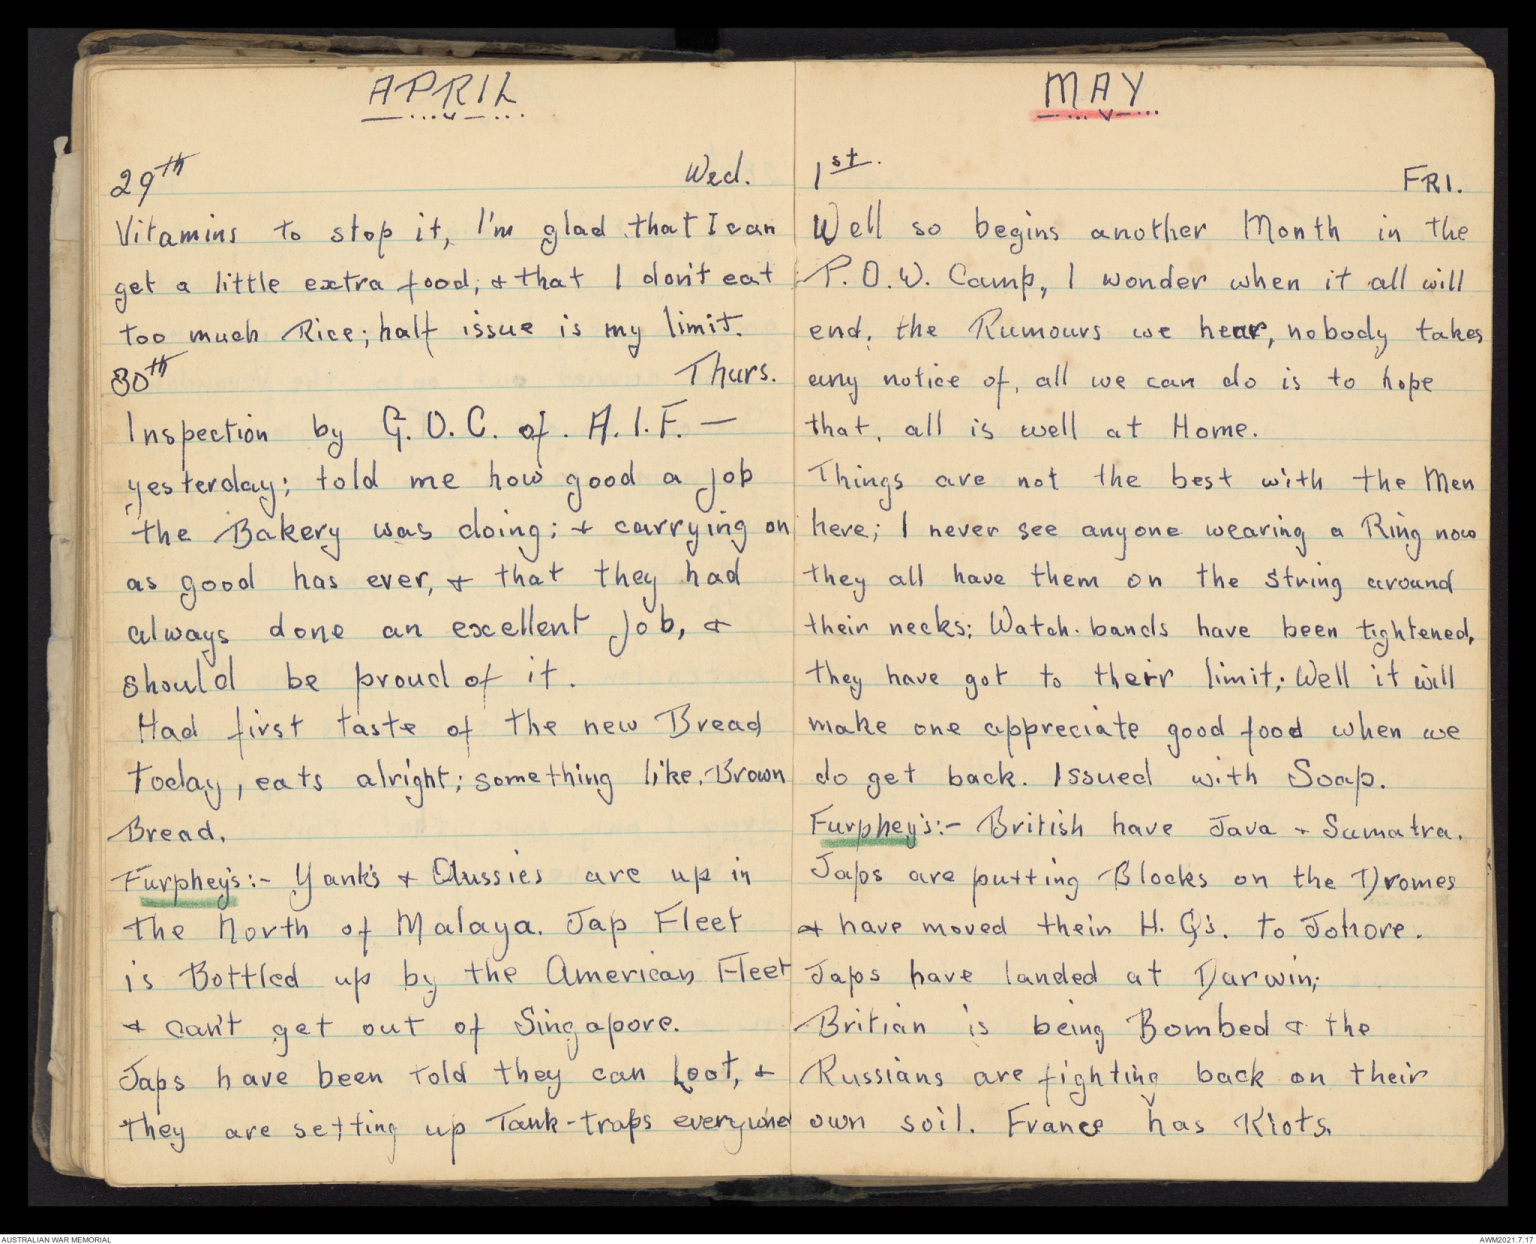 APRIL
29th Wed.
Vitamins to stop it, I'm glad that I can
get a little extra food, & that I don't eat
too much Rice; half issue is my limit.
30th Thurs.
Inspection by G.O.C. of. A.I.F. —
yesterday; told me how good a job
the Bakery was doing; & carrying on
as good has ever, & that they had
always done an excellent job, &
should be proud of it.
Had first taste of the new Bread
today, eats alright; something like Brown
Bread.
Furphey's:- Yank's & Aussies are up in
the North of Malaya. Jap Fleet
is Bottled up by the American Fleet
& can't get out of Singapore.
Japs have been told they can Loot, &
they are setting up Tank-traps everywhe
MAY
1st. FRI.
Well so begins another Month in the
P.O.W. Camp, I wonder when it all will
end, the Rumours we hear, nobody takes
any notice of, all we can do is to hope
that, all is well at Home.
Things are not the best with the Men
here; I never see anyone wearing a Ring now
they all have them on the String around
their necks; Watch-bands have been tightened,
they have got to their limit; Well it will
make one appreciate good food when we
do get back. Issued with Soap.
Furphey's:- British have Java & Sumatra.
Japs are putting Blocks on the Dromes
& have moved their H.Q's. to Johore.
Japs have landed at Darwin;
Britian is being Bombed & the
Russians are fighting back on their
own soil. France has Riots.
AUSTRALIAN WAR MEMORIAL
AWM2021.7.17